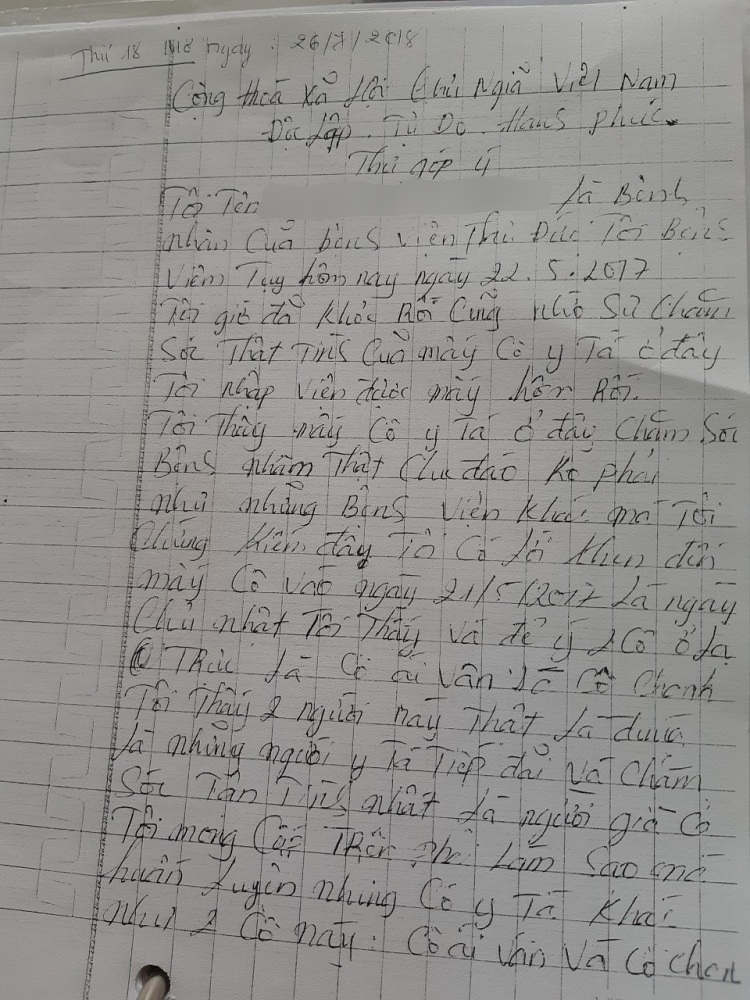 Thứ 18 ngày: 26/7/2018
Cộng thoà Xã Hội Chủ Ngiã Việt Nam
Độc Lập. Tự Do. Hans phúc.
Thư góp ý
Tôi Tên là Bệnh
nhân Cuả bệns viện Thủ Đức Tôi Bệns
Viêm Tụy hôm nay ngày 22.5.2017
Tôi giờ đã khỏe Rồi Cũng nhờ Sự Chăm
Sóc Thật Tins Cuả mấy Cô y Tá ở đây
Tôi nhập viện được mấy hôm Rồi.
Tôi Thấy mấy Cô y Tá ở đây Chăm Sóc
Bệns nhâm Thật Chu đáo Ko phải
như những Bệns viện khác mà Tôi
Chứng Kiến đây Tô Có lời khen đến
mấy Cô vào ngày 21/5/2017 là ngày
Chủ nhật Tôi Thấy và để ý 2 Cô ở lại
Trực là Cô ái vân là Cô Chanh
Tôi Thấy 2 người này Thật là
là những người y Tá Tiếp đải và Chăm
Sóc Tận Tins nhất là người già Cô
Tôi mong Cấp Trên phải Làm Sao mà
huấn Luyện những Cô y Tá Khác
như 2 Cô này. Cô ái vân và Cô chan